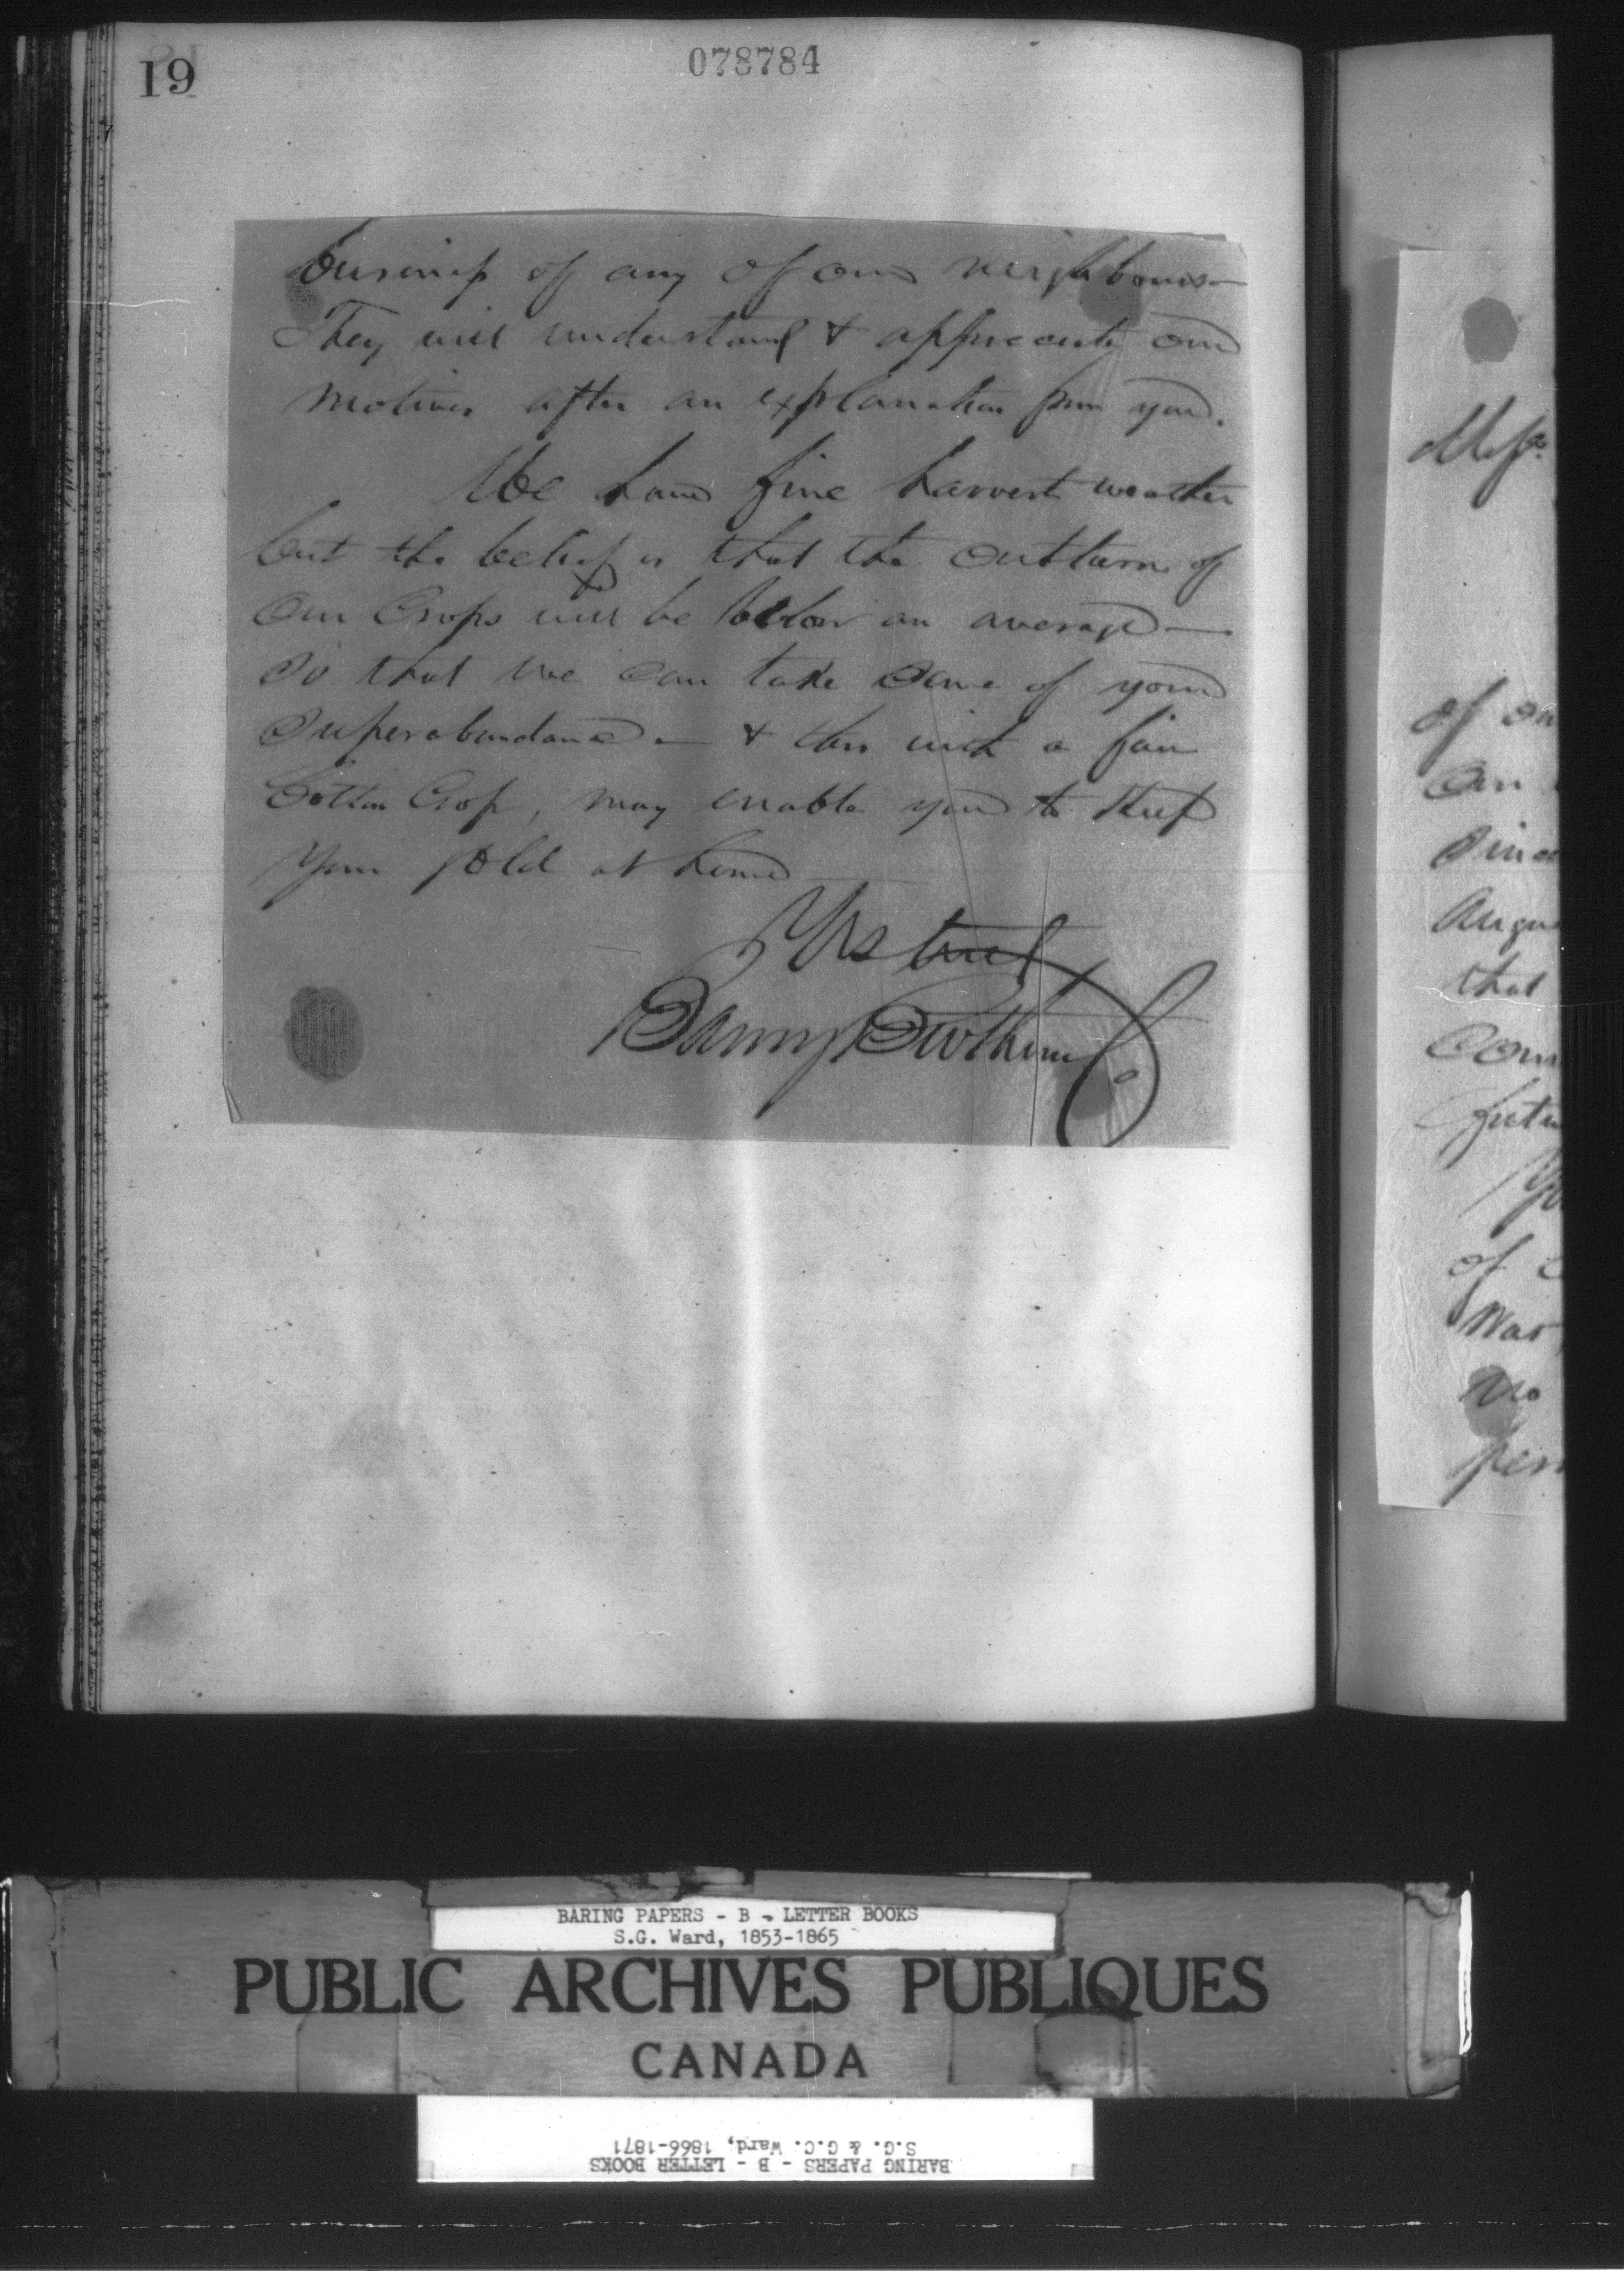 19
078784
business of any of our neighbours —
They will understand & appreciate our
motives after an explanation from you.
We have fine harvest weather
but the belief is that the outturn of
our Crops will be below an average —
so that we can take some of your
superabundance — & this with a fair
Cotton Crop, may enable you to keep
your gold at home —
Yrs truly
Baring Brothers & Co
Messrs
of ou
Our
Since
Augu
that
Com
futu
Yo
of
War
no
per
BARING PAPERS - B - LETTER BOOKS
S.G. Ward, 1853-1865
PUBLIC ARCHIVES PUBLIQUES
CANADA
BARING PAPERS - B - LETTER BOOKS
S.G. & G.C. Ward, 1866-1871